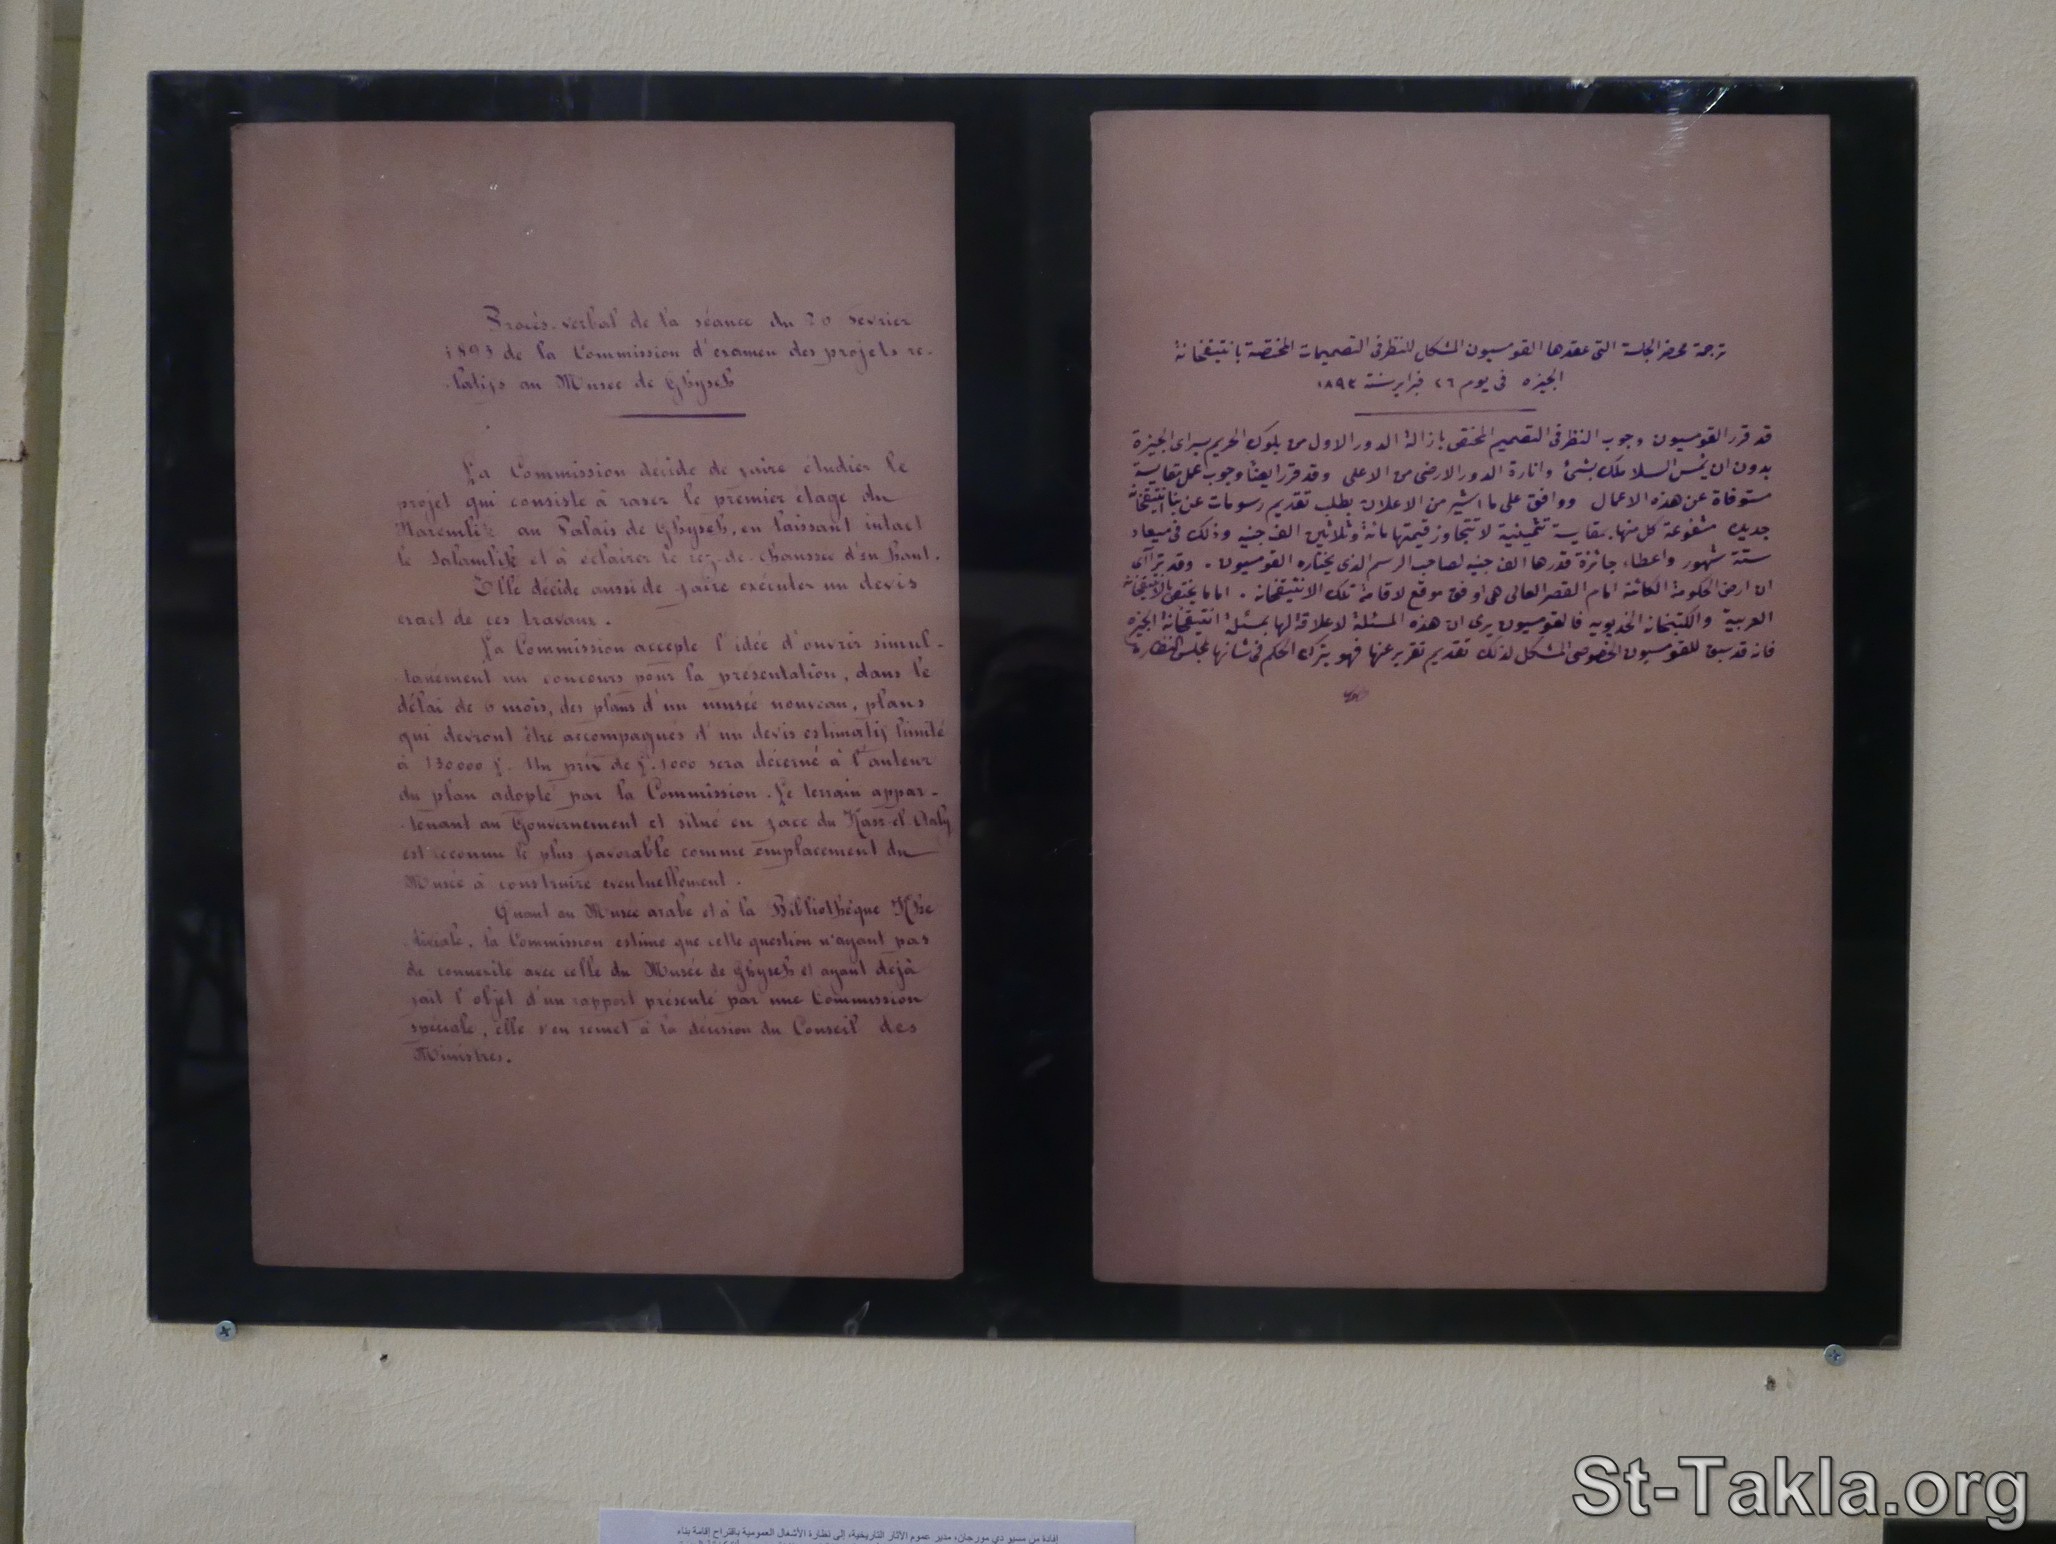 Procès-verbal de la séance du 20 février
1893 de la Commission d'examen des projets re-
-latifs au Musée de Ghyseh
La Commission décide de faire étudier le
projet qui consiste à raser le premier étage du
Haremlik au Palais de Ghyseh, en laissant intact
le Salamlik et à éclairer le rez-de-chaussée d'en haut.
Elle décide aussi de faire exécuter un devis
exact de ces travaux.
La Commission accepte l'idée d'ouvrir simul-
-tanément un concours pour la présentation, dans le
délai de 6 mois, des plans d'un musée nouveau, plans
qui devront être accompagnés d'un devis estimatif limité
à 130000 £. Un prix de £.1000 sera décerné à l'auteur
du plan adopté par la Commission. Le terrain appar-
-tenant au Gouvernement et situé en face du Kasr-el-Aaly
est reconnu le plus favorable comme emplacement du
Musée à construire eventuellement.
Quant au Musée arabe et à la Bibliothèque Khe
-diviale, la Commission estime que cette question n'ayant pas
de connexité avec celle du Musée de Ghyseh et ayant déjà
fait l'objet d'un rapport présenté par une Commission
spéciale, elle s'en remet à la décision du Conseil des
Ministres.
ترجمة محضر الجلسة التى عقدها القومسيون المشكل للنظر فى التصميمات المختصة بانتيقخانة
الجيزه فى يوم ٢٦ فبراير سنة ١٨٩٣
قد قرر القومسيون وجوب النظر فى التصميم المختص بازالة الدور الاول من بلوك الحريم بسراى الجيزة
بدون ان يمس السلاملك بشئ وانارة الدور الارضى من الاعلى وقد قرر ايضا وجوب عمل مقايسة
مستوفاة عن هذه الاعمال ووافق على ما اشير من الاعلان بطلب تقديم رسومات عن بنا انتيقخانة
جديده مشفوعة كل منها بمقايسة تثمينية لا تتجاوز قيمتها مائة وثلاثين الف جنيه وذلك فى ميعاد
ستة شهور واعطاء جائزة قدرها الف جنيه لصاحب الرسم الذى يختاره القومسيون . وقد تراآى
ان ارض الحكومة الكائنة امام القصر العالى هى اوفق موقع لاقامة تلك الانتيقخانة . اما ما يختص بالانتيقخانة
العربية والكتبخانة الخديويه فالقومسيون يرى ان هذه المسئلة لا علاقة لها بمسئلة انتيقخانة الجيزه
فانه قد سبق للقومسيون الخصوصى المشكل لذلك تقديم تقرير عنها فهو يترك الحكم فى شانها لمجلس النظارة
إفادة من مسيو دي مورجان، مدير عموم الآثار التاريخية، إلى نظارة الأشغال العمومية باقتراح إقامة بناء
St-Takla.org